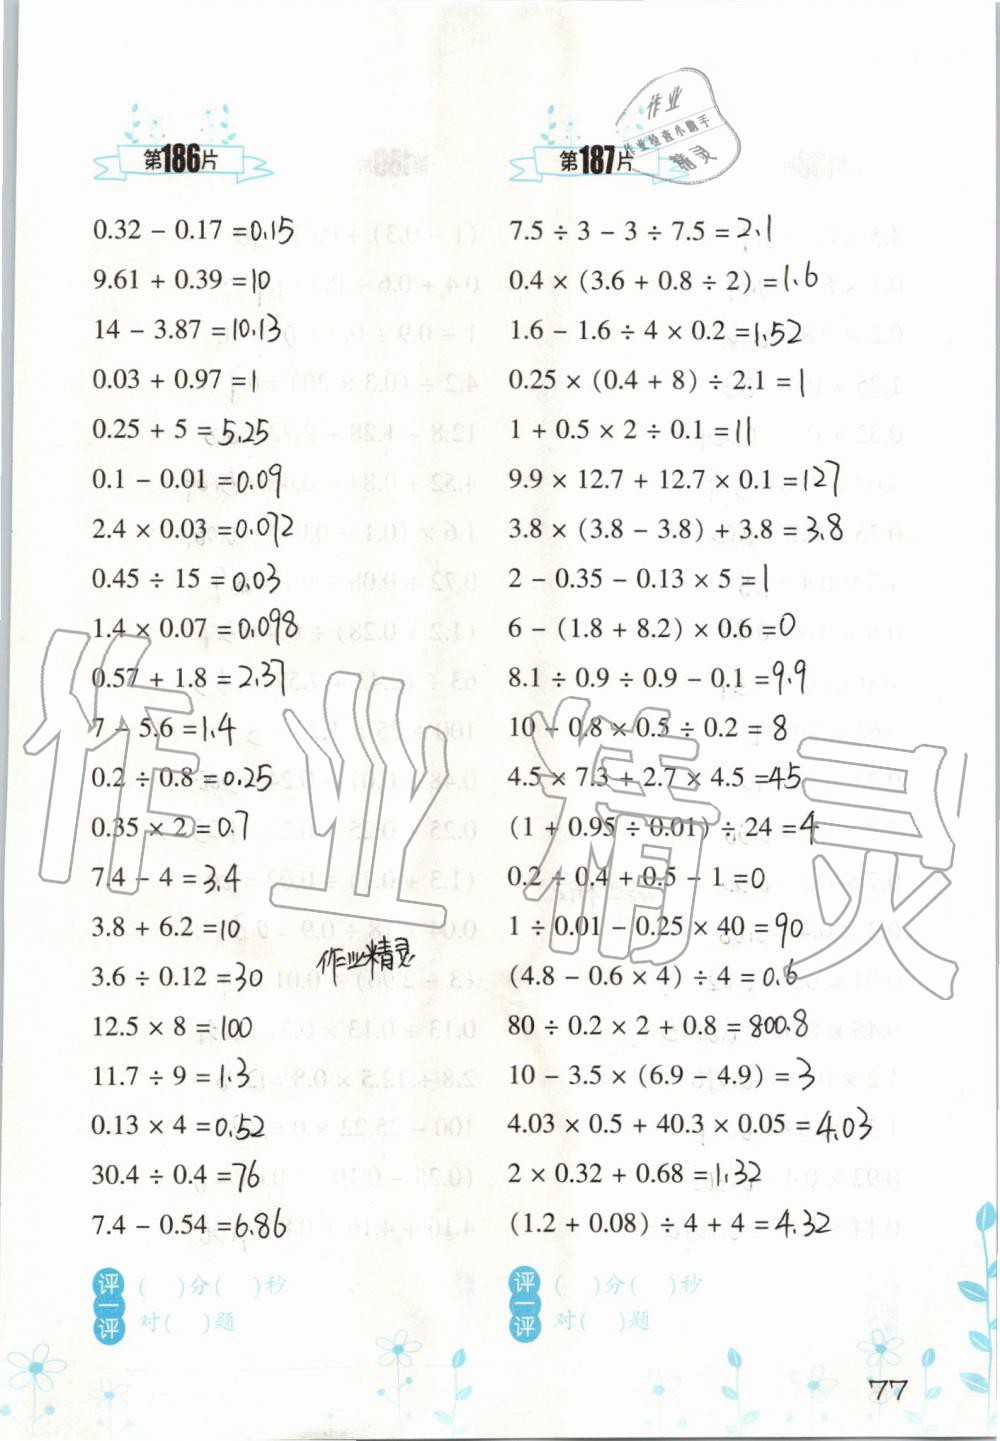 第186片
0.32 − 0.17 = 0.15
9.61 + 0.39 = 10
14 − 3.87 = 10.13
0.03 + 0.97 = 1
0.25 + 5 = 5.25
0.1 − 0.01 = 0.09
2.4 × 0.03 = 0.072
0.45 ÷ 15 = 0.03
1.4 × 0.07 = 0.098
0.57 + 1.8 = 2.37
7 − 5.6 = 1.4
0.2 ÷ 0.8 = 0.25
0.35 × 2 = 0.7
7.4 − 4 = 3.4
3.8 + 6.2 = 10
3.6 ÷ 0.12 = 30
12.5 × 8 = 100
11.7 ÷ 9 = 1.3
0.13 × 4 = 0.52
30.4 ÷ 0.4 = 76
7.4 − 0.54 = 6.86
评一评
( )分( )秒
对( )题
作业精灵
第187片
7.5 ÷ 3 − 3 ÷ 7.5 = 2.1
0.4 × (3.6 + 0.8 ÷ 2) = 1.6
1.6 − 1.6 ÷ 4 × 0.2 = 1.52
0.25 × (0.4 + 8) ÷ 2.1 = 1
1 + 0.5 × 2 ÷ 0.1 = 11
9.9 × 12.7 + 12.7 × 0.1 = 127
3.8 × (3.8 − 3.8) + 3.8 = 3.8
2 − 0.35 − 0.13 × 5 = 1
6 − (1.8 + 8.2) × 0.6 = 0
8.1 ÷ 0.9 ÷ 0.9 − 0.1 = 9.9
10 − 0.8 × 0.5 ÷ 0.2 = 8
4.5 × 7.3 + 2.7 × 4.5 = 45
(1 + 0.95 ÷ 0.01) ÷ 24 = 4
0.2 ÷ 0.4 + 0.5 − 1 = 0
1 ÷ 0.01 − 0.25 × 40 = 90
(4.8 − 0.6 × 4) ÷ 4 = 0.6
80 ÷ 0.2 × 2 + 0.8 = 800.8
10 − 3.5 × (6.9 − 4.9) = 3
4.03 × 0.5 + 40.3 × 0.05 = 4.03
2 × 0.32 + 0.68 = 1.32
(1.2 + 0.08) ÷ 4 + 4 = 4.32
评一评
( )分( )秒
对( )题
作业
作业检查小助手
精灵
作业精灵
77